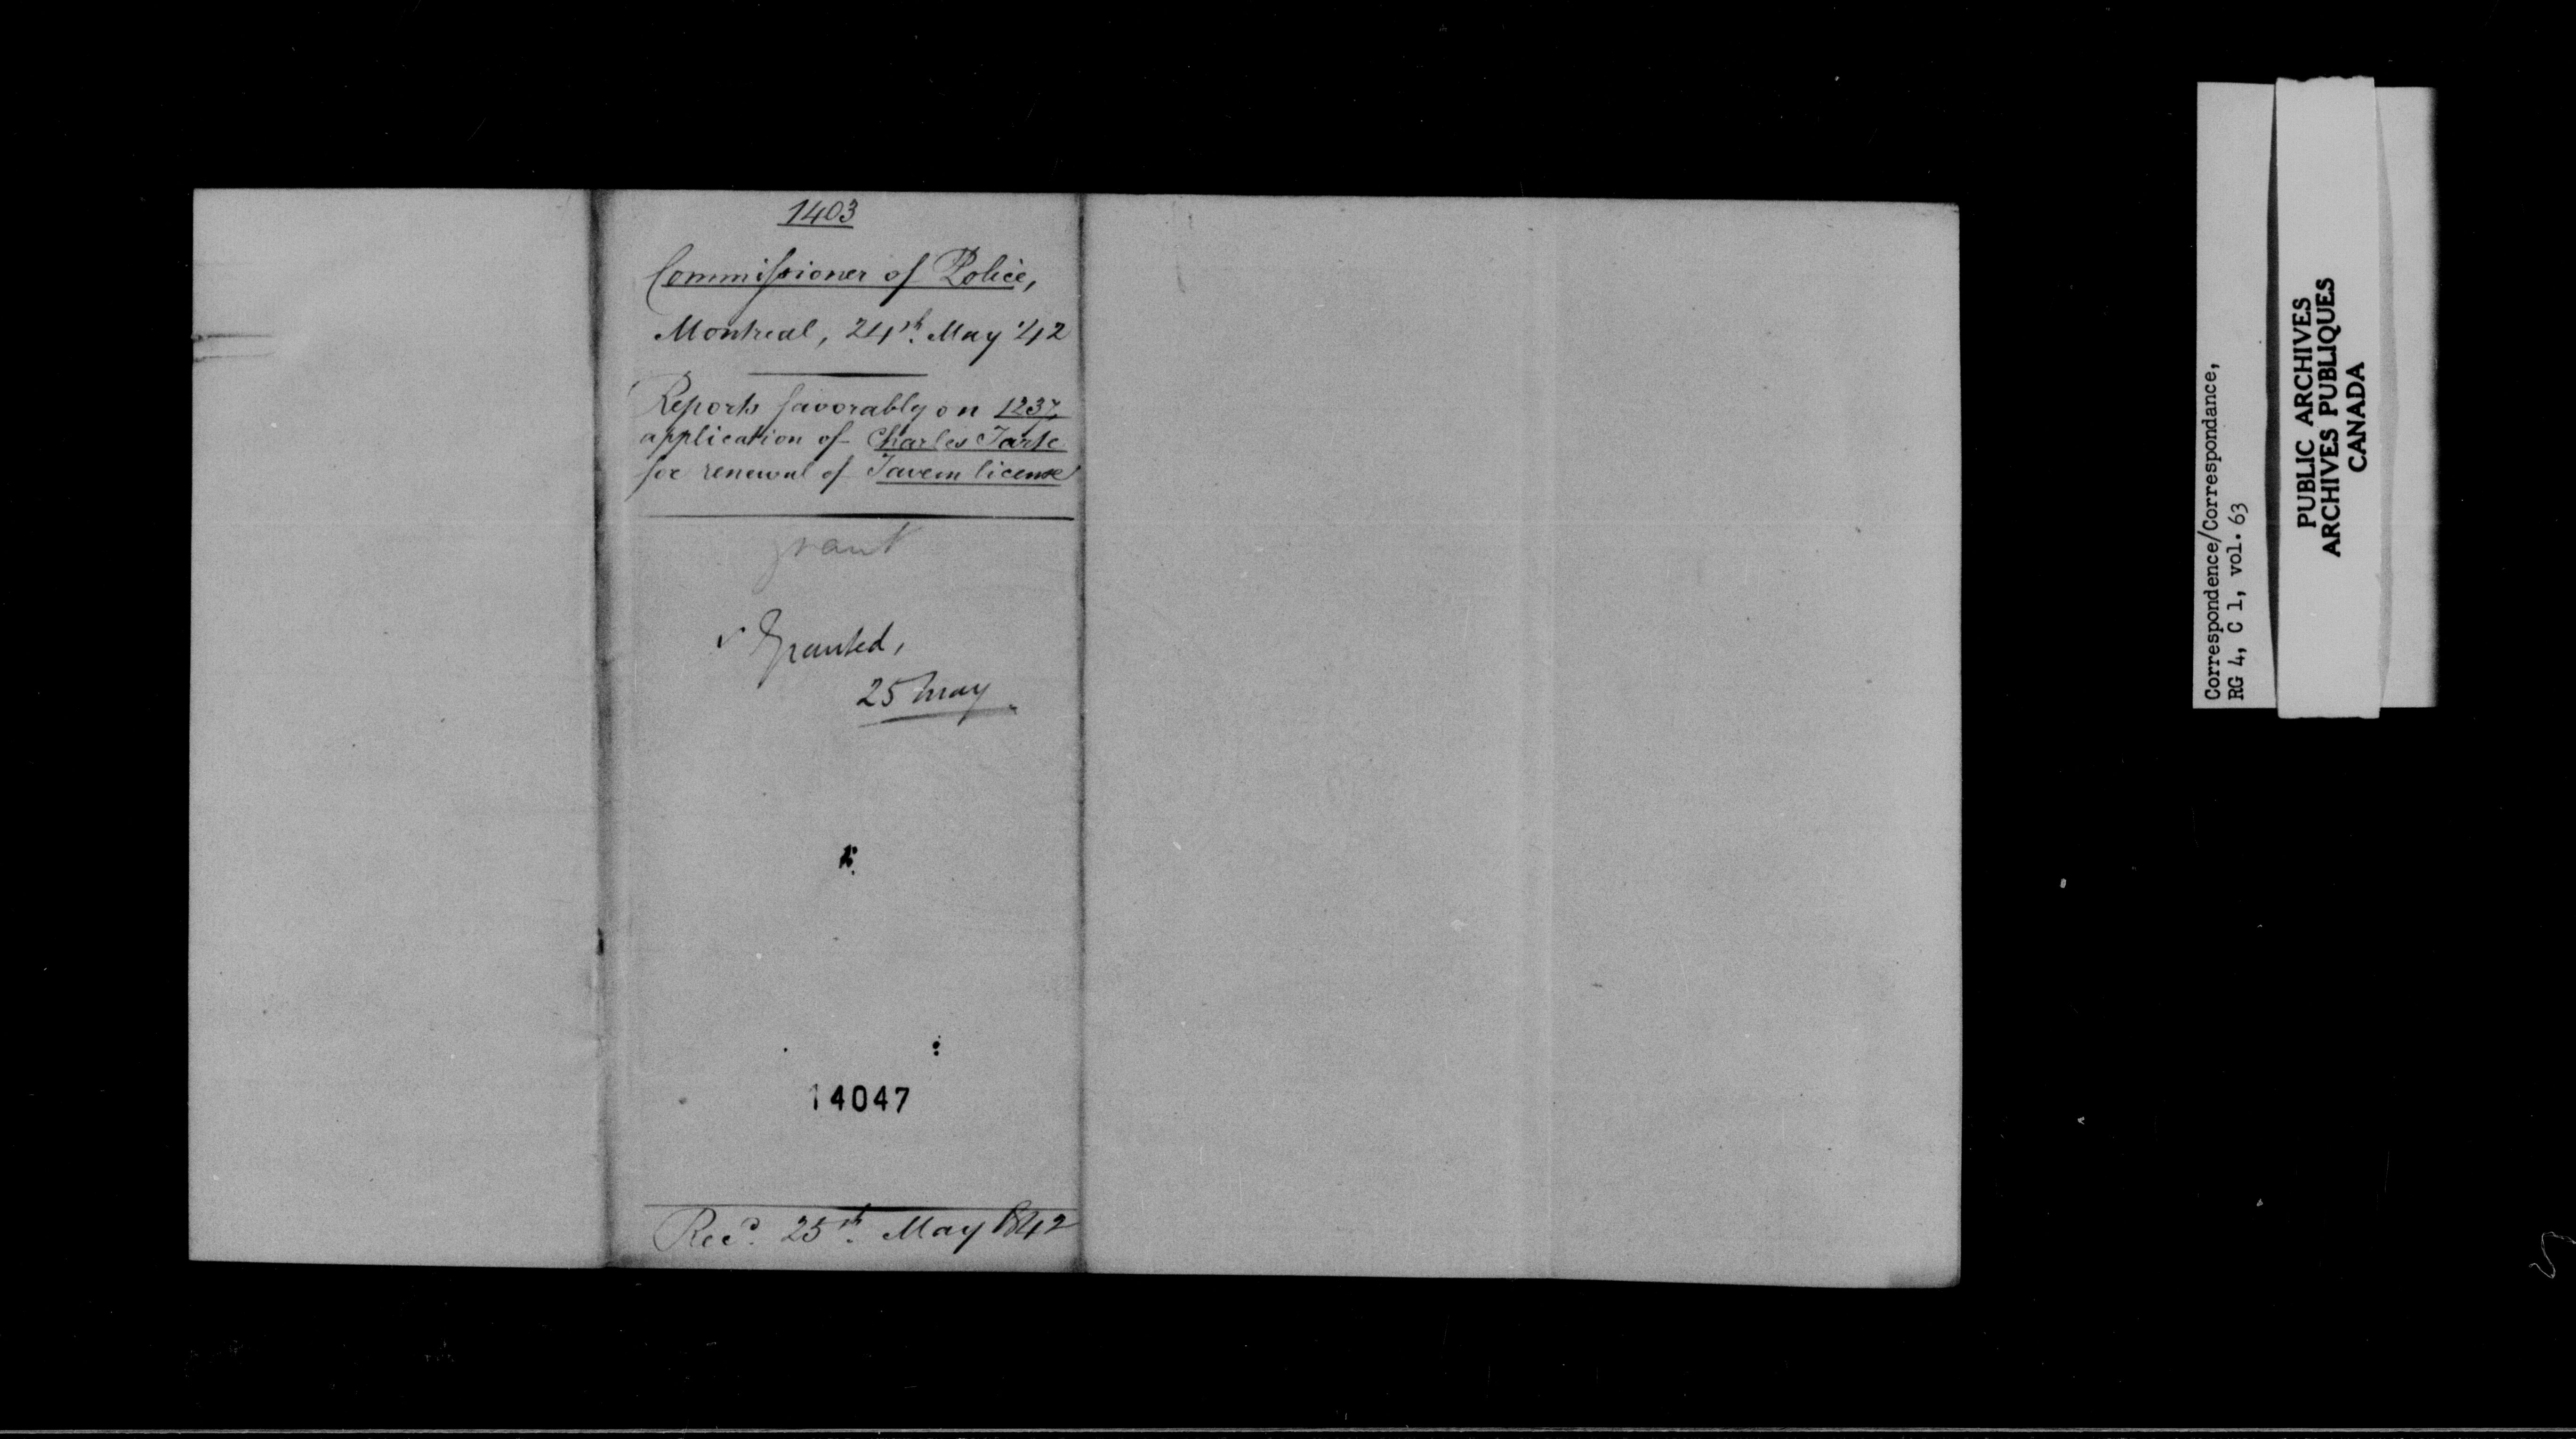 1403
Commissioner of Police,
Montreal, 24th. May '42
Reports favorably on 1237,
application of Charles Tarte
for renewal of Tavern license
grant
✓ Granted,
25 May
14047
Recd. 25th. May 1842
Correspondence/Correspondance,
RG 4, C 1, vol. 63
PUBLIC ARCHIVES
ARCHIVES PUBLIQUES
CANADA